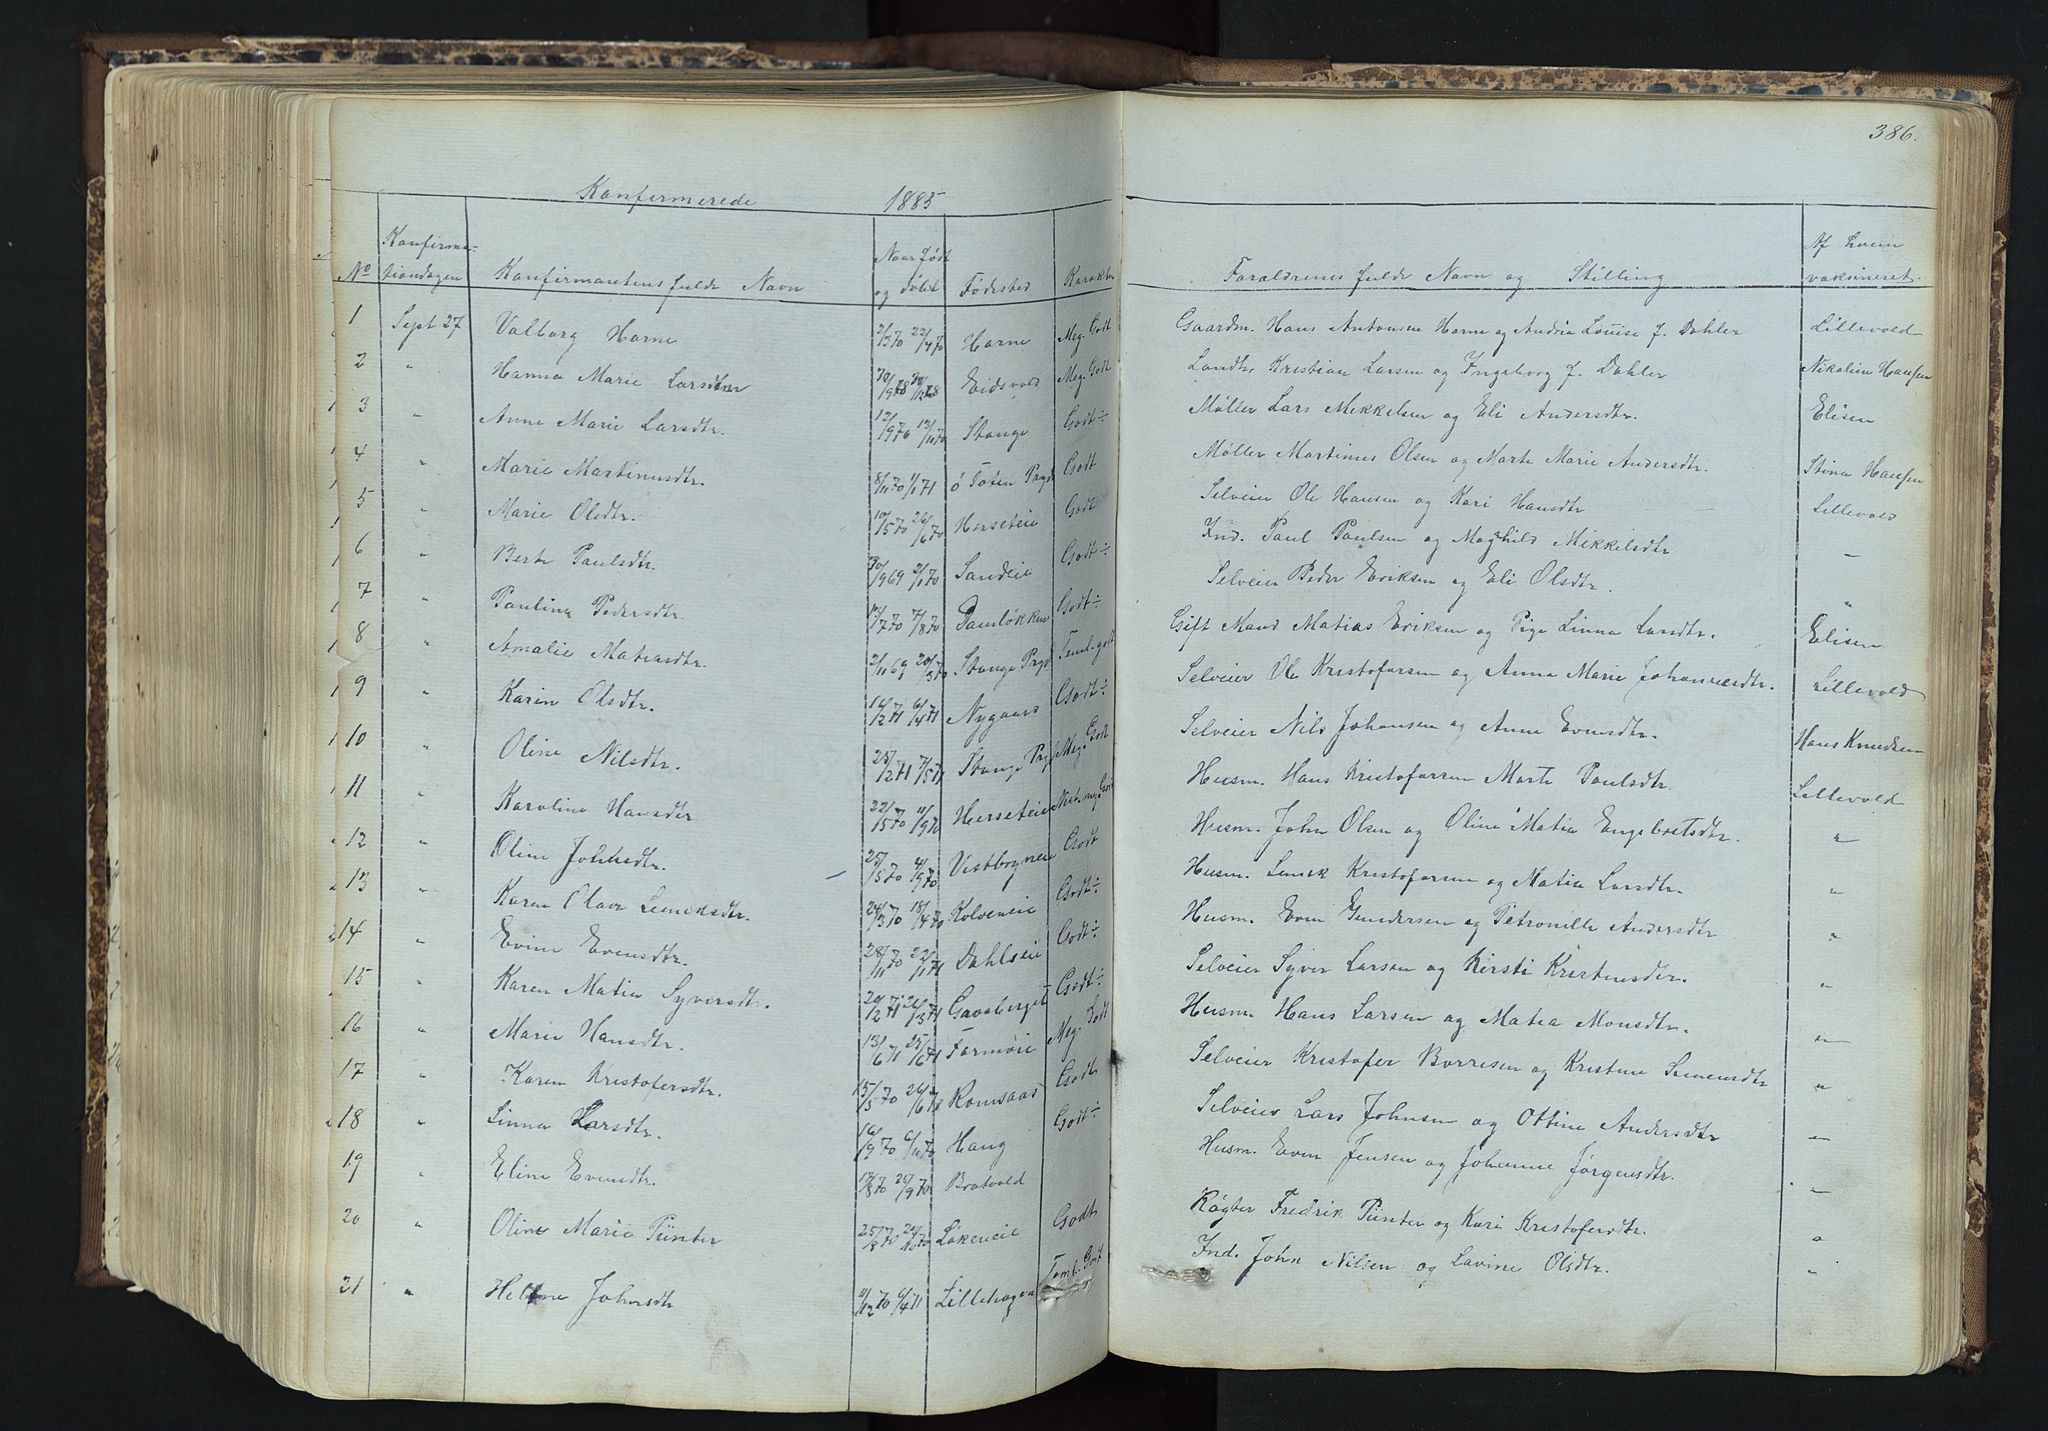 386.
Konfirmerede 1885
No Konfirmationsdagen Konfirmantens fulde Navn Naar født og døbt Fødested Karakter Forældrenes fulde Navn og Stilling Af hvem vaksineret
1 Sept 27 Valborg Horne 2/3 70 22/4 70 Horne Meg. Godt Gaardm. Hans Antonsen Horne og Andrea Louise f. Dahler Lillevold
2 " Hanna Marie Larsdtr Eidsvold Meg. Godt Landh. Kristian Larsen og Ingeborg f. Dahler Nikoline Hansen
3 " Anne Marie Larsdtr. 12/9 70 13/11 70 Stange Godt ÷ Møller Lars Mikkelsen og Eli Andersdtr. Elisen
4 " Marie Martinusdtr. 8/11 70 1/1 71 ø Toten Prgd Godt Møller Martinus Olsen og Marte Marie Andersdtr. Stina Hansen
5 " Marie Olsdtr. 10/5 70 26/6 70 Herseteie Godt Selveier Ole Hansen og Kari Hansdtr Lillevold
6 " Berte Paulsdtr. 30/9 69 2/1 70 Sandeie Godt ÷ Ind. Paul Paulsen og Maghild Mikkelsdtr —
7 " Pauline Pedersdtr. 12/7 70 7/8 70 Damløkken Godt ÷ Selveier Peder Eriksen og Eli Olsdtr. "
8 " Amalie Matiasdtr. 2/11 69 20/3 70 Stange Prgd Teml. godt Gift Mand Matias Eriksen og Pige Linna Larsdtr. Elisen
9 " Karen Olsdtr. 16/2 71 6/4 71 Nygaard Godt ÷ Selveier Ole Kristofersen og Anna Marie Johannesdtr. Lillevold
10 " Oline Nilsdtr. 25/2 71 7/5 71 Stange Prgd Meg. Godt Selveier Nils Johansen og Anne Evensdtr. Hans Knudsen
11 " Karoline Hansdtr 22/5 70 11/9 70 Herseteie Næst. meg. Godt Husm. Hans Kristofersen Marte Paulsdtr. Lillevold
12 " Oline Johnsdtr. 25/5 70 4/9 70 Vestbyneie Godt Husm. John Olsen og Oline Matia Engebretsdtr. "
13 " Karen Olava Lemeksdtr. 24/3 70 18/4 70 Kolveneie Godt ÷ Husm. Lemek Kristofersen og Matia Larsdtr. "
14 " Evine Evensdtr. 28/11 70 22/1 71 Dahlseie Godt ÷ Husm. Even Gundersen og Petronille Andersdtr "
15 " Karen Matia Syversdtr. 20/2 71 26/3 71 Gaasberget Godt ÷ Selveier Syver Larsen og Kersti Kristensdtr. "
16 " Marie Hansdtr. 13/6 71 25/6 71 Farmøie Meg. Godt Husm. Hans Larsen og Matea Monsdtr. "
17 " Karen Kristofersdtr. 15/5 70 26/6 Romsaas Godt Selveier Kristofer Borresen og Kristine Semensdtr "
18 " Linna Larsdtr. 16/9 70 6/11 70 Haug Godt ÷ Selveier Lars Johnsen og Ottine Andersdtr "
19 " Eline Evensdtr. 17/8 70 25/9 70 Bratvold Husm. Even Jensen og Johanne Jørgensdtr. "
20 " Oline Marie Pünter 25/8 70 Løkeneie Godt Røgter Fredrik Pünter og Kari Kristofersdtr. "
21 " Helene Johnsdtr 11/12 70 6/4 71 Lillehagen Teml. Godt Ind. John Nilsen og Lavine Olsdtr. "